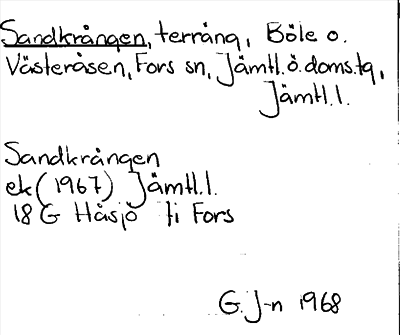 Sandkrången, terräng, Böle o.
Västeråsen, Fors sn, Jämtl.ö.doms.tg,
Jämtl.l.
Sandkrången
ek (1967) Jämtl.l.
18 G Håsjö fi Fors
G. J-n 1968